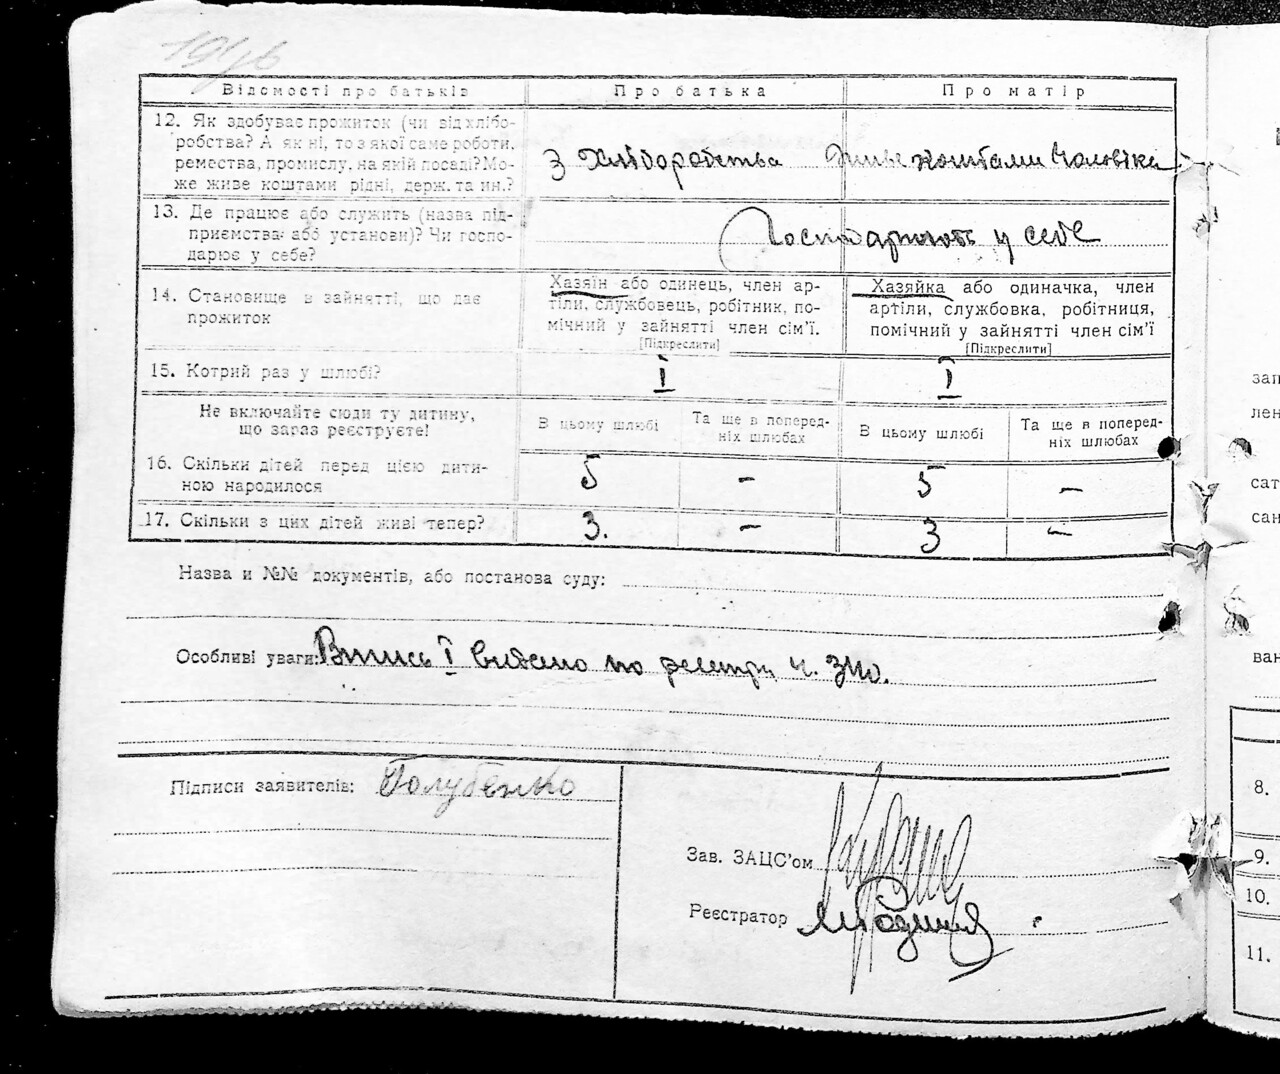 1946
Відомості про батьків Про батька Про матір
12. Як здобуває прожиток (чи від хлібо-
робства? А як ні, то з якої саме роботи,
ремества, промислу, на якій посаді? Мо-
же живе коштами рідні, держ. та ин.?
З Хліборобства Живе коштами чоловіка
13. Де працює або служить (назва під-
приємства або установи)? Чи госпо-
дарює у себе?
Господарюють у себе
14. Становище в зайнятті, що дає
прожиток
Хазяїн або одинець, член ар-
тіли, службовець, робітник, по-
мічний у зайнятті член сім'ї.
[Підкреслити]
Хазяйка або одиначка, член
артіли, службовка, робітниця,
помічний у зайнятті член сім'ї
[Підкреслити]
15. Котрий раз у шлюбі? I I
Не включайте сюди ту дитину,
що зараз реєструєте!
В цьому шлюбі
Та ще в поперед-
ніх шлюбах
В цьому шлюбі
Та ще в поперед-
ніх шлюбах
16. Скільки дітей перед цією дити-
ною народилося
5 - 5 -
17. Скільки з цих дітей живі тепер? 3. - 3 -
Назва и №№ документів, або постанова суду:
Особливі уваги: Випись I видано по реєстру ч.
Підписи заявителів: Голубенко
Зав. ЗАЦС'ом
Реєстратор
зап
лен
сат
сан
ван
8.
9.
10.
11.